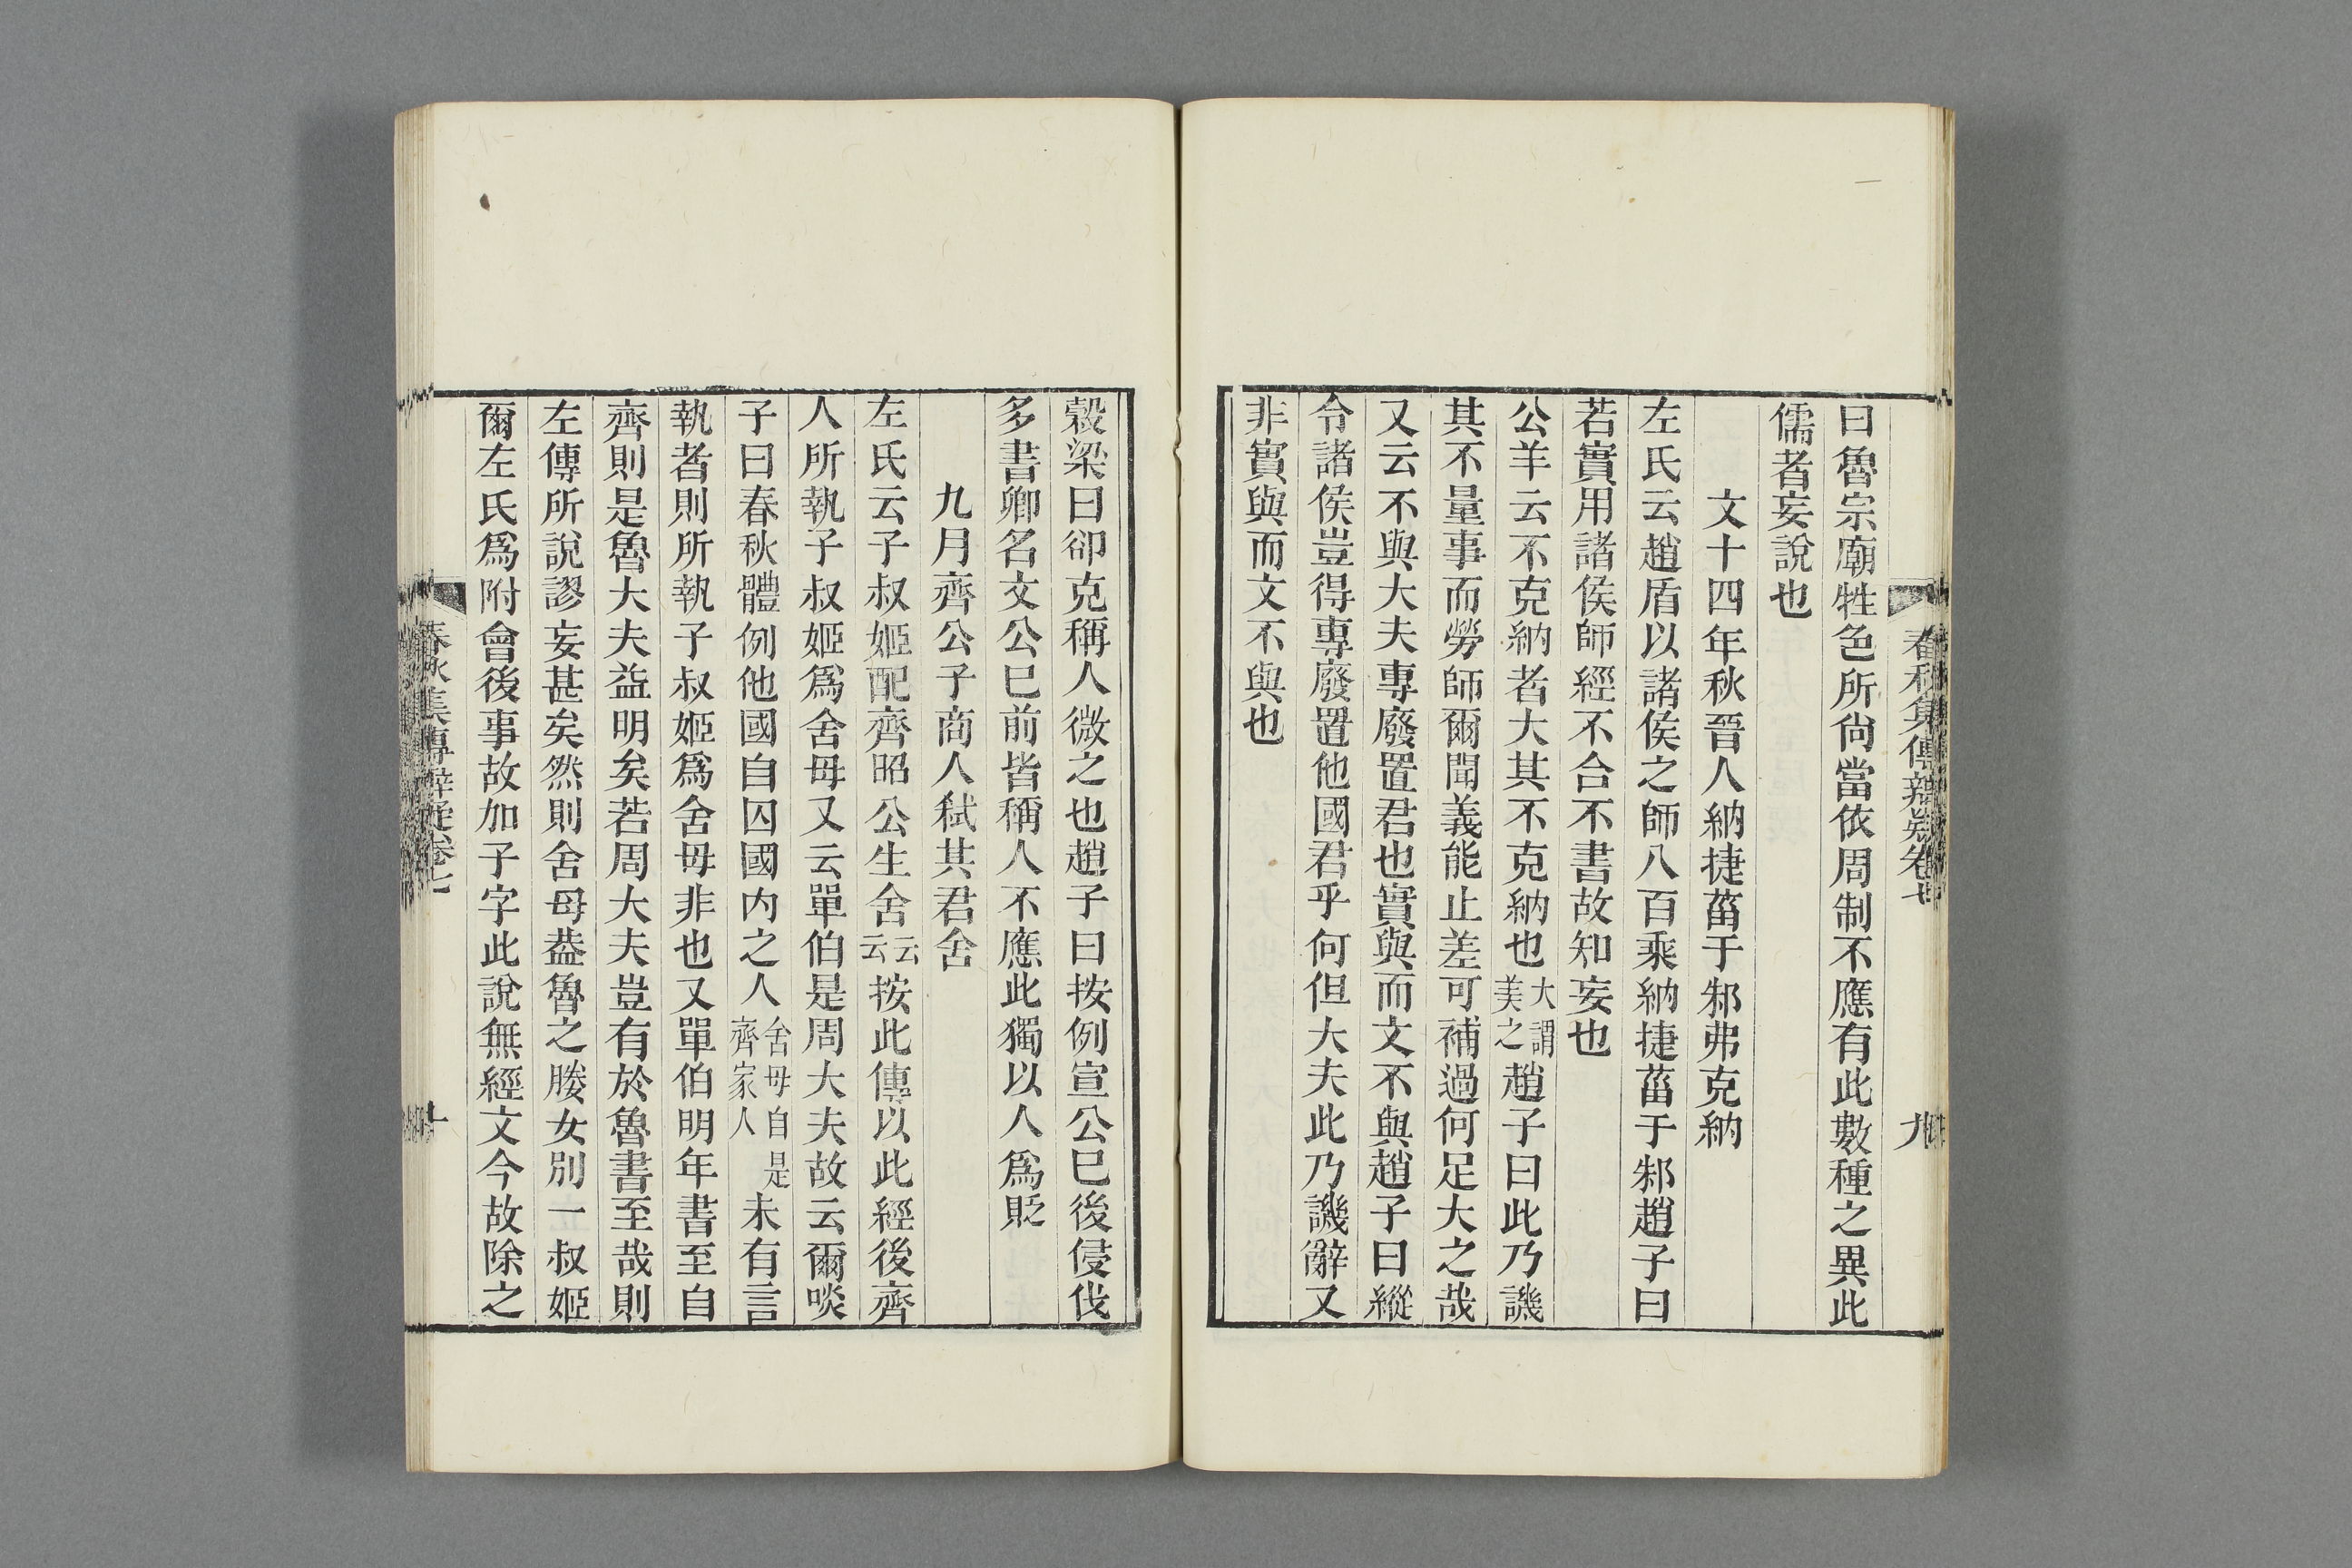 春秋集傳辯疑卷七
九
曰魯宗廟牲色所尙當依周制不應有此數種之異此
儒者妄說也
文十四年秋晉人納捷菑于邾弗克納
左氏云趙盾以諸侯之師八百乘納捷菑于邾趙子曰
若實用諸侯師經不合不書故知妄也
公羊云不克納者大其不克納也大謂美之趙子曰此乃譏
其不量事而勞師爾聞義能止差可補過何足大之哉
又云不與大夫專廢置君也實與而文不與趙子曰縱
令諸侯豈得專廢置他國君乎何但大夫此乃譏辭又
非實與而文不與也
穀梁曰卻克稱人微之也趙子曰按例宣公巳後侵伐
多書卿名文公巳前皆稱人不應此獨以人爲貶
九月齊公子商人弒其君舍
左氏云子叔姬配齊昭公生舍云云按此傳以此經後齊
人所執子叔姬爲舍母又云單伯是周大夫故云爾啖
子曰春秋體例他國自囚國內之人舍母自是齊家人未有言
執者則所執子叔姬爲舍母非也又單伯明年書至自
齊則是魯大夫益明矣若周大夫豈有於魯書至哉則
左傳所說謬妄甚矣然則舍母葢魯之媵女別一叔姬
爾左氏爲附會後事故加子字此說無經文今故除之
春秋集傳辯疑卷七
十